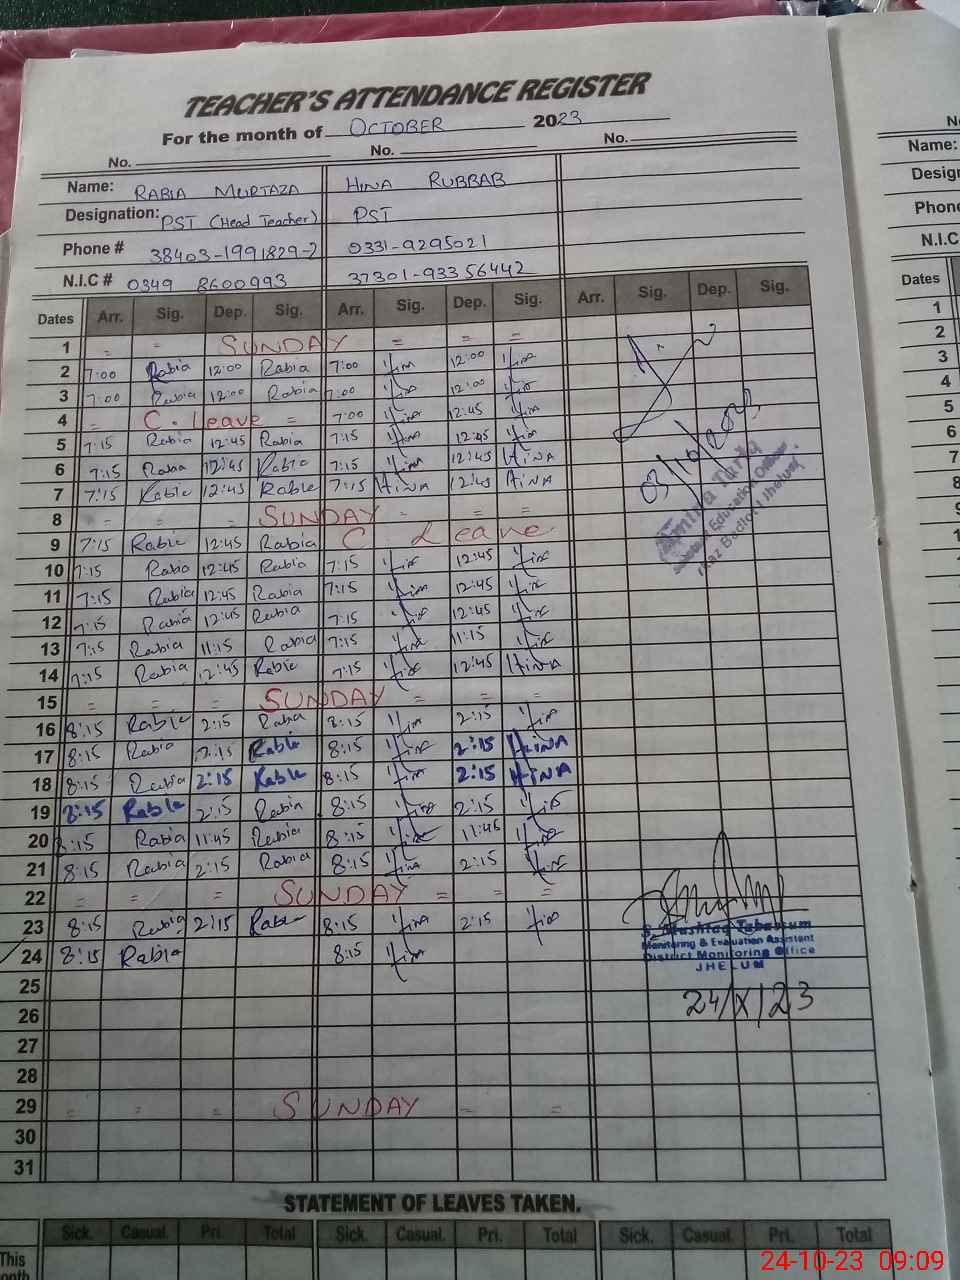 TEACHER'S ATTENDANCE REGISTER
For the month of OCTOBER 2023
No. No. No.
Name: RABIA MURTAZA HINA RUBBAB
Designation: PST (Head Teacher) PST
Phone # 38403-1991829-2 0331-9295021
N.I.C # 0349 8600993 37301-9335644 2
Dates Arr. Sig. Dep. Sig. Arr. Sig. Dep. Sig. Arr. Sig. Dep. Sig.
1 = = SUNDAY = = =
2 7:00 Rabia 12:00 Rabia 7:00 Hina 12:00 Hina
3 7:00 Rabia 12:00 Rabia 7:00 Hina 12:00 Hina
4 = C. Leave = 7:00 Hina 12:45 Hina
5 7:15 Rabia 12:45 Rabia 7:15 Hina 12:45 Hina
6 7:15 Rabia 12:45 Rabia 7:15 Hina 12:45 HINA
7 7:15 Rabia 12:45 Rabia 7:15 HINA 12:45 HINA
8 = = = SUNDAY - = =
9 7:15 Rabia 12:45 Rabia C Leave
10 7:15 Rabia 12:45 Rabia 7:15 Hina 12:45 Hina
11 7:15 Rabia 12:45 Rabia 7:15 Hina 12:45 Hina
12 7:15 Rabia 12:45 Rabia 7:15 Hina 12:45 Hina
13 7:15 Rabia 11:15 Rabia 7:15 Hina 11:15 Hina
14 7:15 Rabia 12:45 Rabia 7:15 Hina 12:45 HINA
15 = = = SUNDAY = = =
16 8:15 Rabia 2:15 Rabia 8:15 Hina 2:15 Hina
17 8:15 Rabia 2:15 Rabia 8:15 Hina 2:15 HINA
18 8:15 Rabia 2:15 Rabia 8:15 Hina 2:15 HINA
19 8:15 Rabia 2:15 Rabia 8:15 Hina 2:15 Hina
20 8:15 Rabia 11:45 Rabia 8:15 Hina 11:45 Hina
21 8:15 Rabia 2:15 Rabia 8:15 Hina 2:15 Hina
22 = = = SUNDAY = = =
23 8:15 Rabia 2:15 Rabia 8:15 Hina 2:15 Hina
24 8:15 Rabia 8:15 Hina
25
26
27
28
29 = = = SUNDAY = =
30
31
03/10/2023
Education Officer
Jhelum
S. Mushtaq Tabassum
Monitoring & Evaluation Assistant
District Monitoring Office
JHELUM
24/X/23
STATEMENT OF LEAVES TAKEN.
Sick. Casual. Pri. Total Sick. Casual. Pri. Total Sick. Casual. Pri. Total
This
24-10-23 09:09
Name:
Phone
N.I.C
Dates
1
2
3
4
5
6